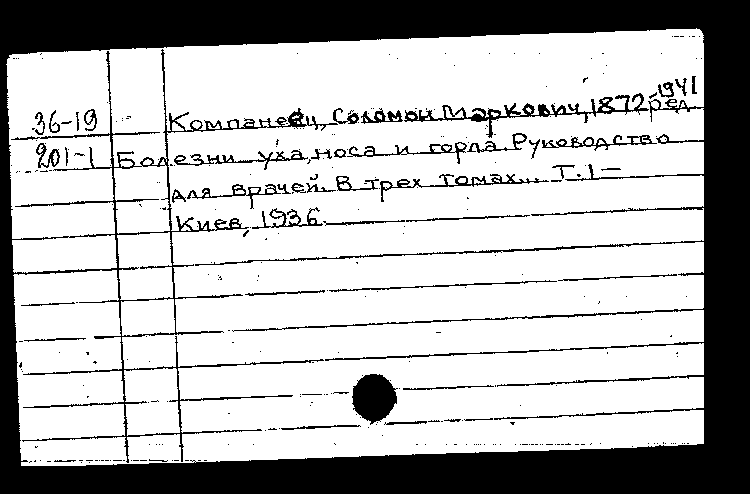 36-19 Компанеец, Соломон Маркович, 1872-1941 ред.
201-1 Болезни уха, носа и горла. Руководство
для врачей. В трех томах... Т.1—
Киев, 1936.